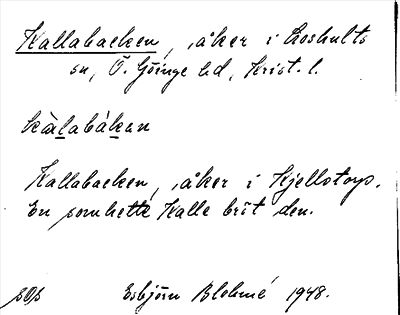 Kallabacken, åker i Loshults
sn, Ö. Göinge hd, Krist. l.
kàlabákan
Kallabacken, åker i Kjellstorp.
En som hette Kalle bröt den.
sOs Esbjörn Blohmé 1948.